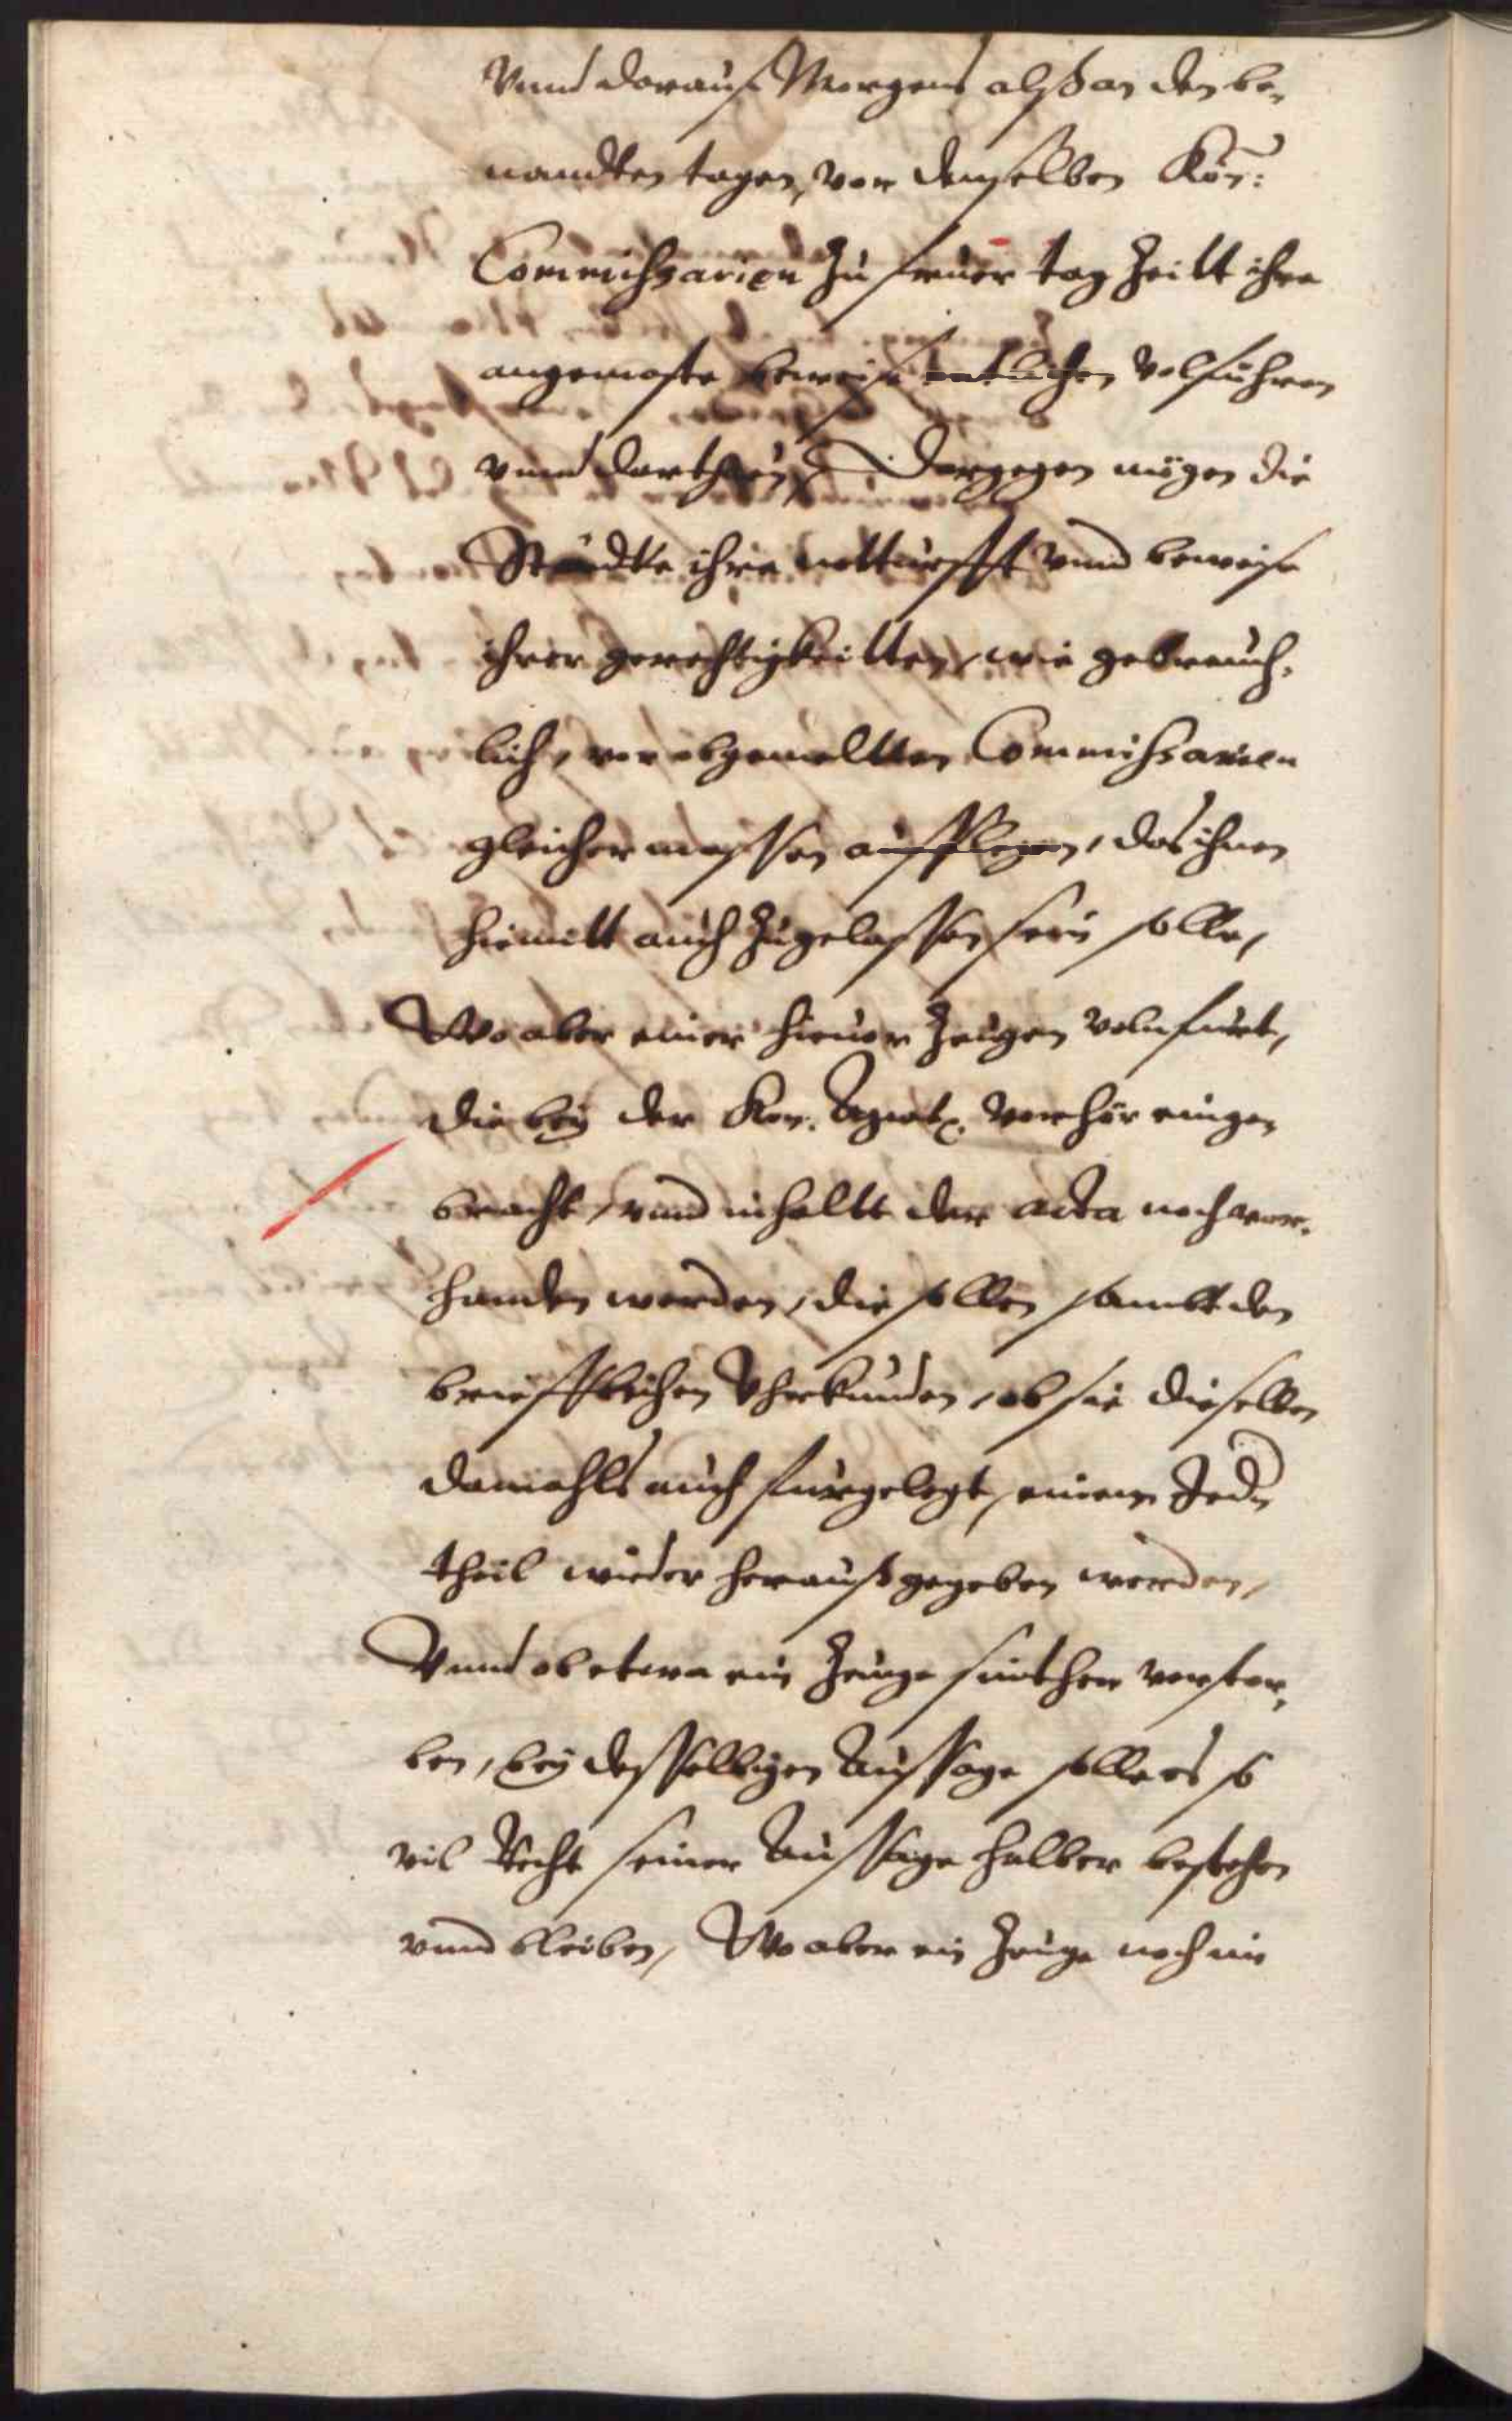 Vnnd darauf Morgens alß an den be,
nandten tagen, vor denselben Kön:
Commissarien zu frueer tag Zeitt ihre
angemaste beweise entlichen volführen
vnnd darthun, Dargegen mögen die
Städte ihre notturfft vnnd beweise
ihrer gerechtigkeitten, wie gebreuch,
lich, vor obgemeltten Commissarien
gleicher massen aufflegen, das ihnen
hiemitt auch zugelassen sein solle,
Wo aber einer hieuor Zeugen volnfurt,
die bey der Kon. verhör eingen
bracht, vnnd inhaltt der acta noch vor,
handen werden, die sollen sambt den
briefflichen Vhrkunden, ob sie dieselben
damahls auch furgelegt, einem Jedn
theil wieder herauß gegeben werden,
Vnnd ob etwa ein Zeuge sinther verstor,
ben, bey desselbigen Aussage solle es so
vil Recht seiner Aussage halber bestehen
vnnd bleiben, Wo aber ein Zeuge noch nie